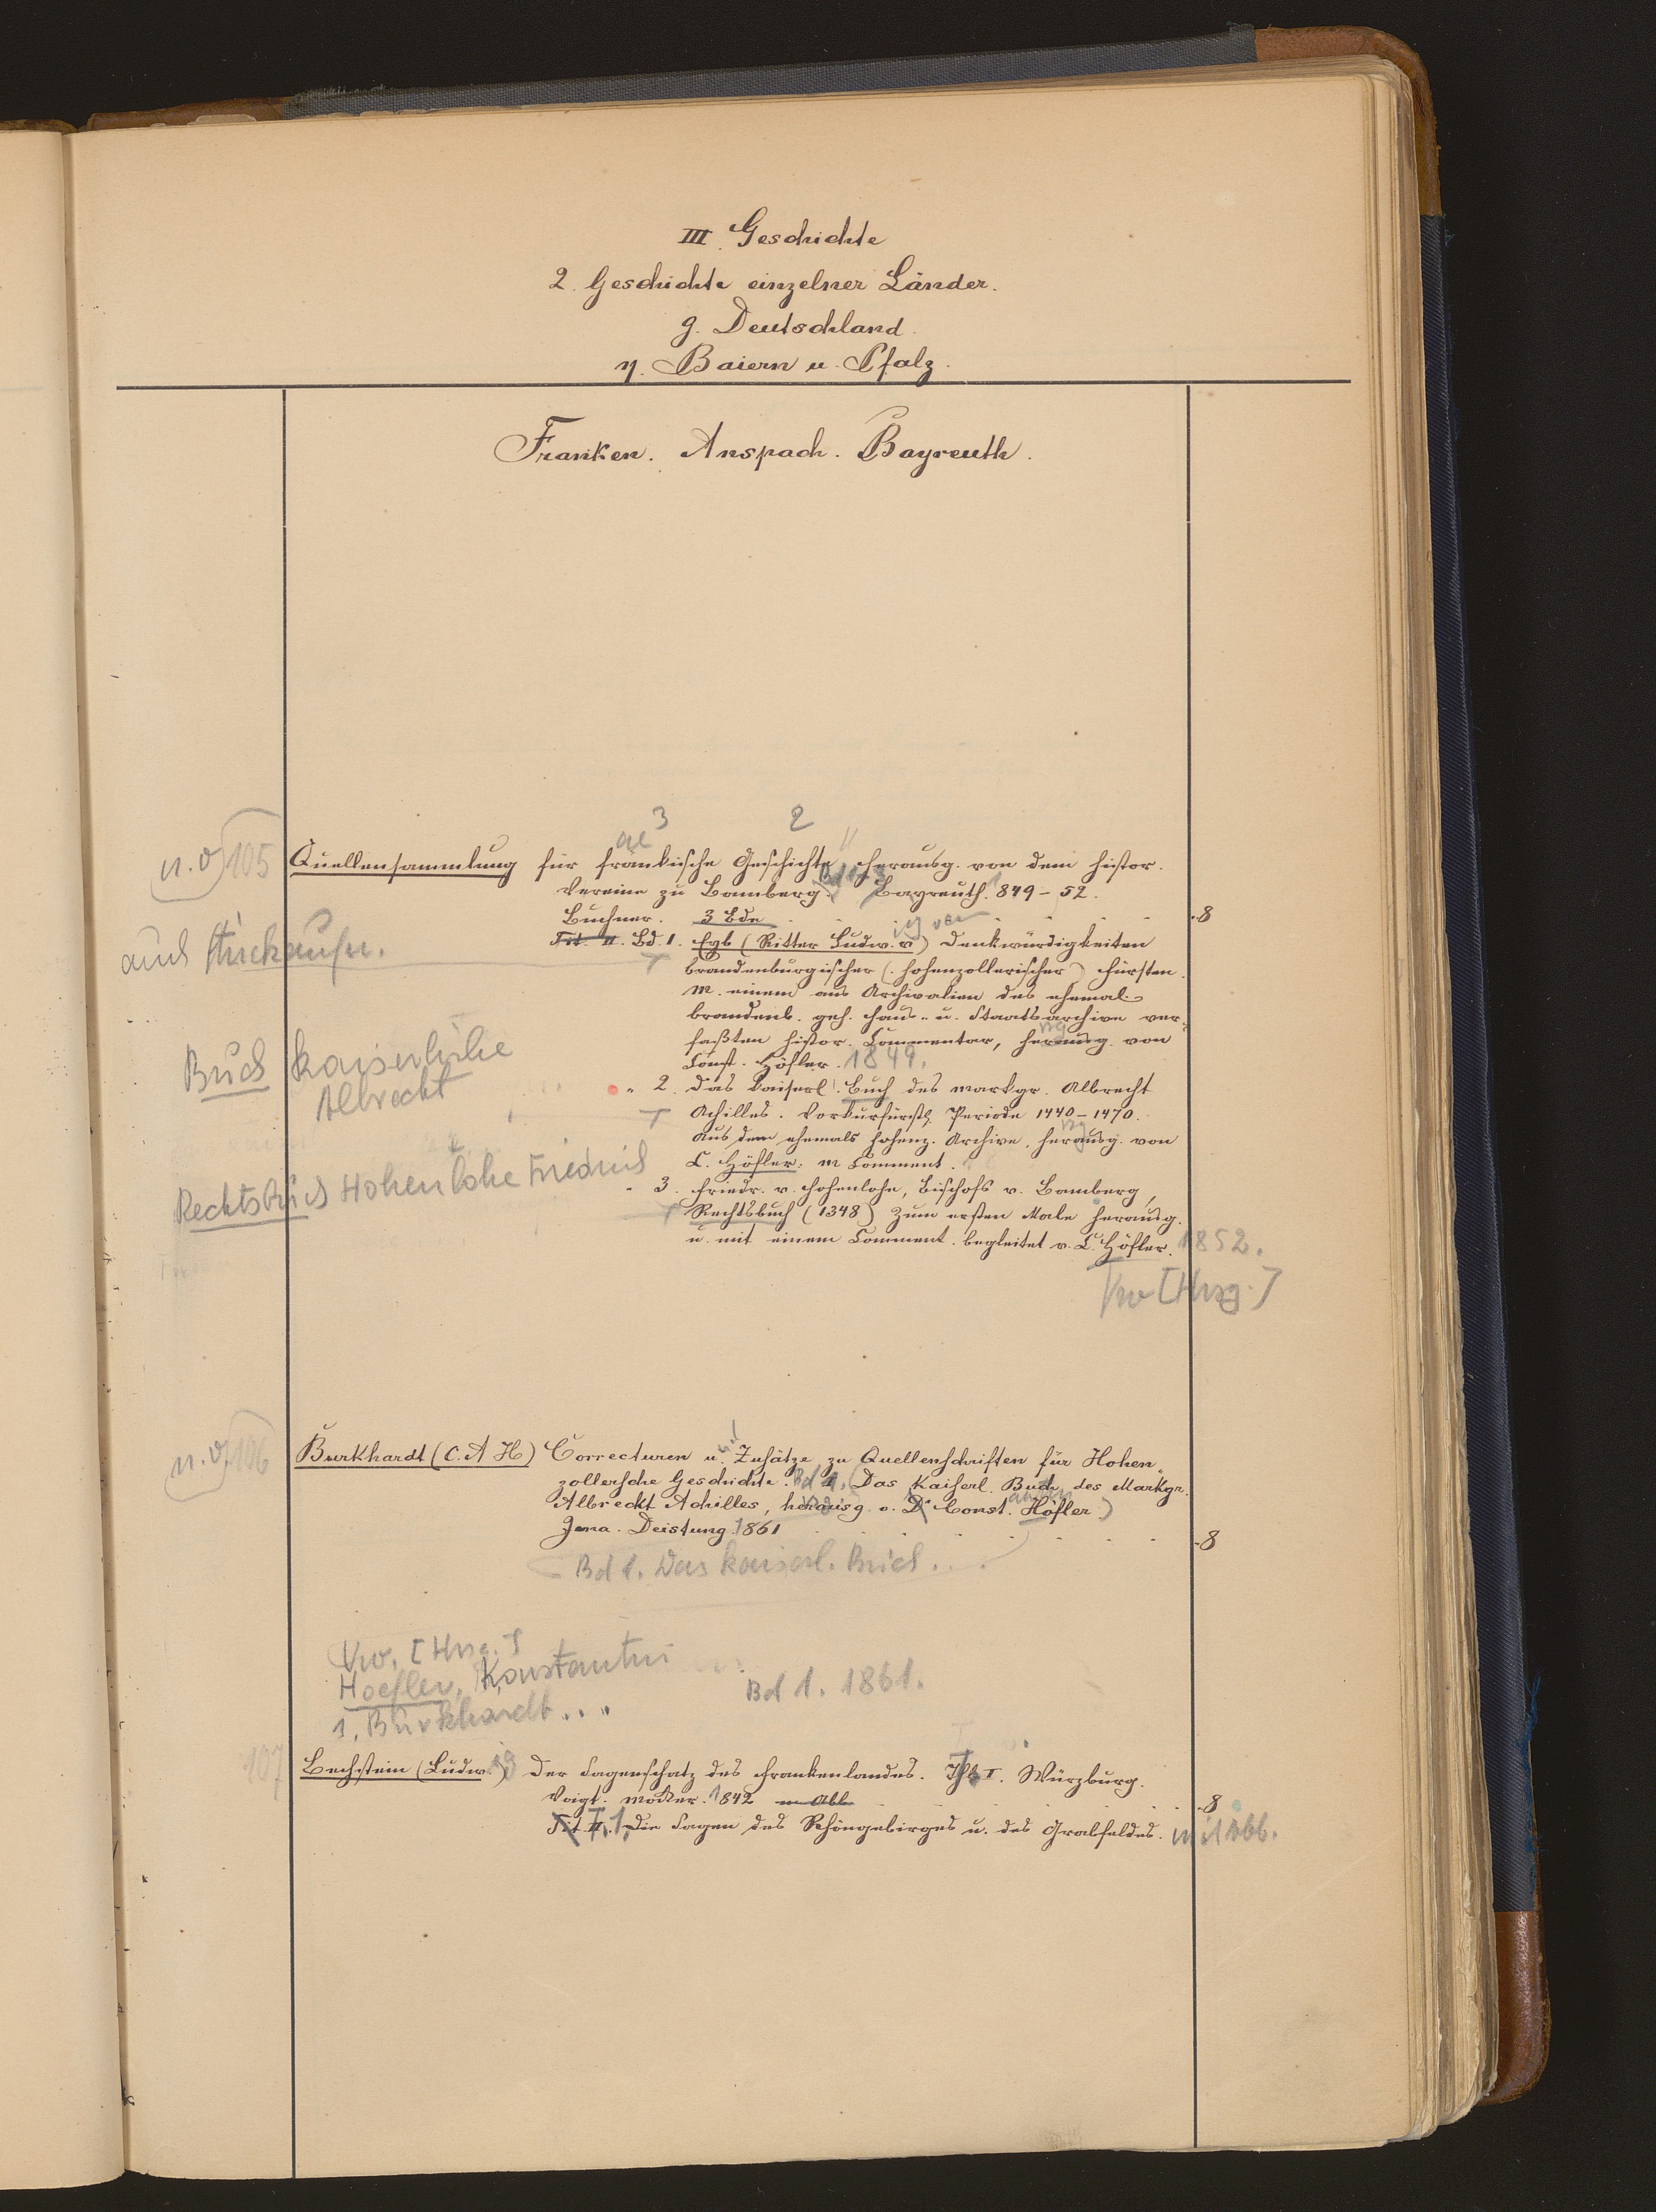 III Geschichte
2. Geschichte einzelner Länder.
g. Deutschland.
η. Baiern u. Pfalz.
Franken. Anspach. Bayreuth.
3 2
ae
n. v. 105 Quellensammlung für fränkische Geschichte, herausg. von dem histor.
Vereine zu Bamberg. Bayreuth. 1849-52.
Buchner. 3 Bde 8
Tit. II. Bd. 1. Eyb (Ritter Ludw. v) Denkwürdigkeiten
brandenburgischer (hohenzollerischer) Fürsten.
m. einem aus Archivalien des ehemal.
brandenb. geh. Haus- u. Staatsarchive ver-
faßten histor. Commentar, herausg. von
Const. Höfler. 1849.
Buch kaiserliche
Albrecht
" 2. Das kaiserl. Buch des Markgr. Albrecht
Achilles. Vorkurfürstl. Periode 1440-1470.
Aus dem ehemals hohenz. Archive. herausg. von
C. Höfler. m Comment.
Rechtsbuch Hohenlohe Friedrich
" 3. Friedr. v. Hohenlohe, Bischofs v. Bamberg,
Rechtsbuch (1348) Zum ersten Male herausg.
u. mit einem Comment. begleitet v. C. Höfler. 1852.
Vw [Hrsg.]
n. v. 106 Burkhardt (C. A H) Correcturen u. Zusätze zu Quellenschriften für Hohen-
zollersche Geschichte. Bd 1. (Das Kaiserl. Buch des Markgr.
Albrecht Achilles, herausg. v. Dr Const. Höfler.)
Jena. Deistung. 1861 8
Bd 1. Das kaiserl. Buch...
Vw. [Hrsg.]
Hoefler, Konstantin
1. Burkhardt..
Bd 1. 1861.
107 Bechstein (Ludw.) Der Sagenschatz des Frankenlandes. Thl I. Würzburg.
Voigt. Mocker. 1842 m Abb 8
Tit II. T. 1. Die Sagen des Rhöngebirges u. des Grabfeldes. mit Abb.